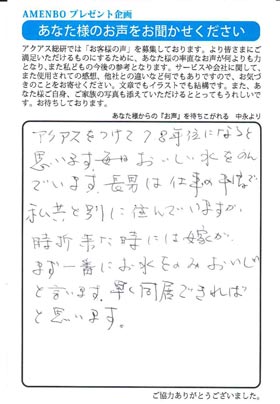 AMENBO プレゼント企画
あなた様のお声をお聞かせください
アクアス総研では「お客様の声」を募集しております。より皆さまにご
満足いただけるものにするために、あなた様の率直なお声が何よりも力
となり、また私どもの今後の参考となります。サービスや会社に関して、
また使用されての感想、他社との違いなど何でもありですので、お気づ
きのことをお寄せください。文章でもイラストでも結構です。また、あ
なた様ご自身、ご家族の写真も添えていただけるととってもうれしいで
す。お待ちしております。
あなた様からの『お声』を待ちこがれる 中永より
アクアスをつけて7 8年位になると
思います 毎日おいしい水をのん
でいます。長男は仕事の都合で
私共と別に住んでいますが
時折来た時には嫁が
まず一番にお水をのみおいしい
と言います。早く同居できれば
と思います。
ご協力ありがとうございました。